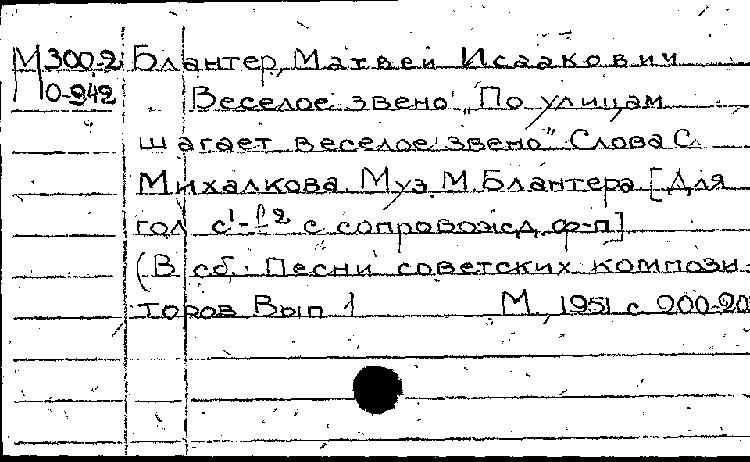 М 300-2 Блантер, Матвей Исаакович
10-942 Веселое звено. „По улицам
шагает веселое звено" Слова С.
Михалкова. Муз. М. Блантера. [Для
гол. c¹-f² с сопровожд. ф-п]
(В сб.: Песни советских компози-
торов. Вып. 1 М., 1951 с. 200-20